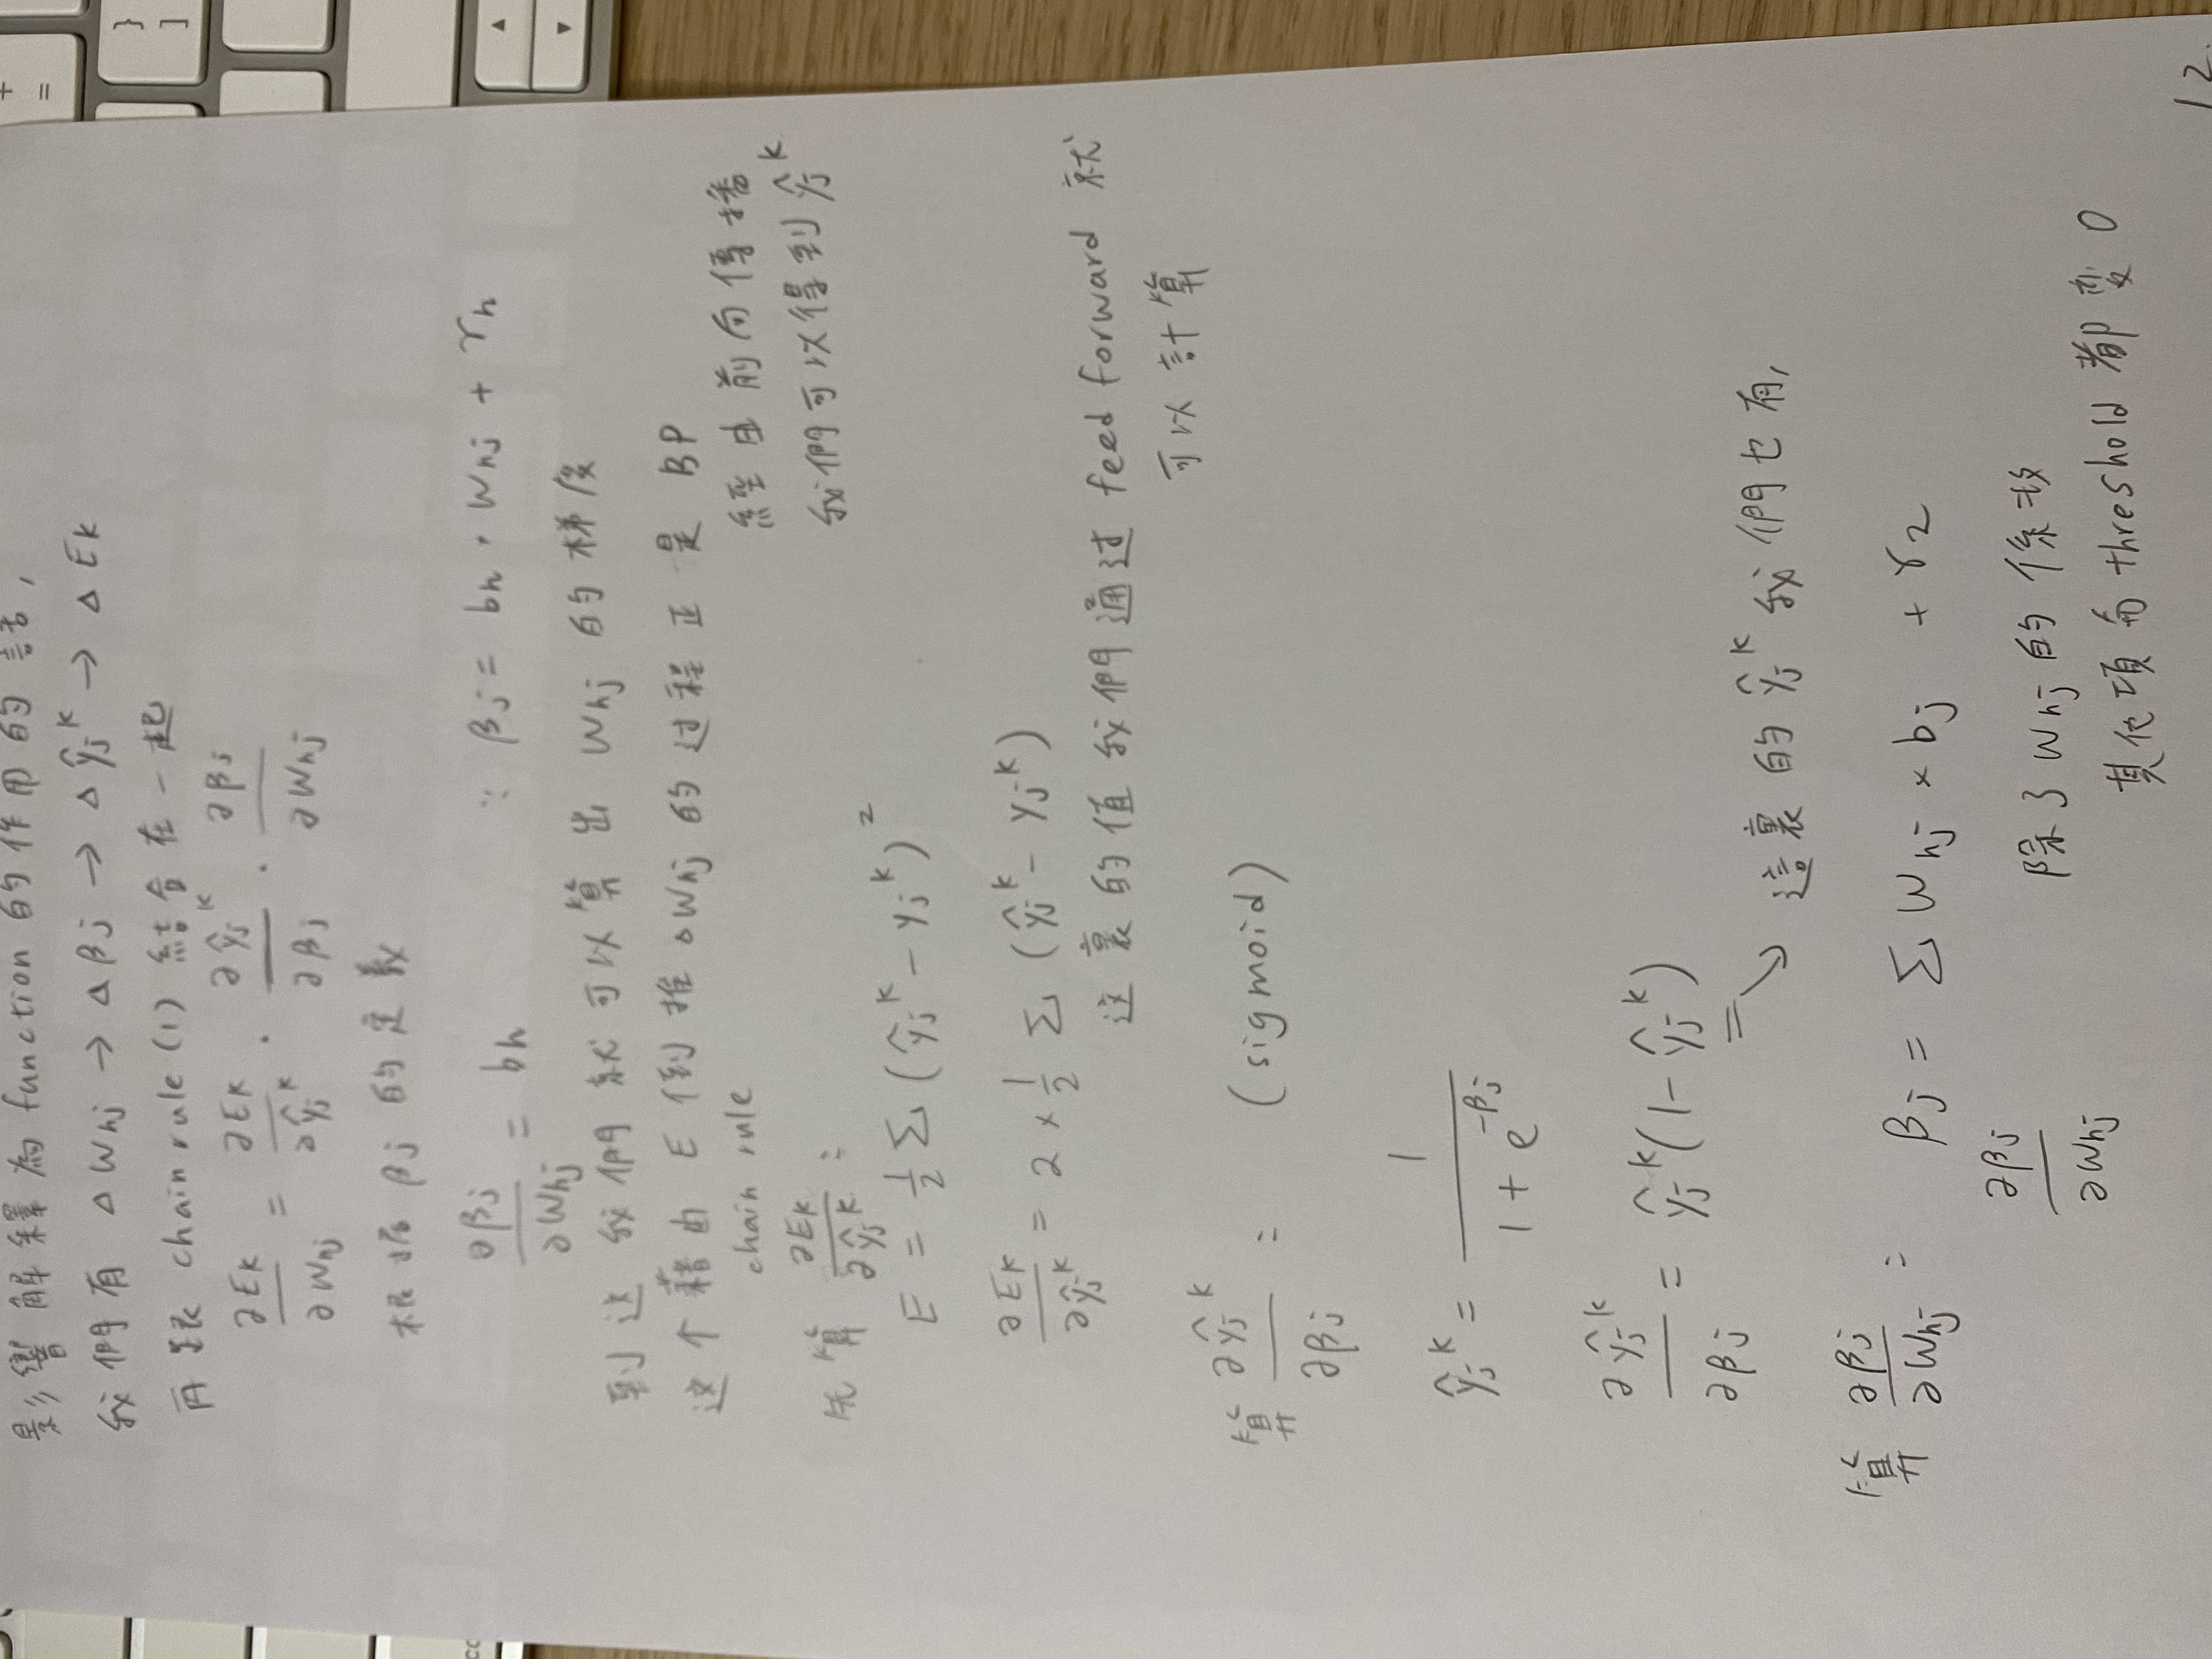 影響解釋為 function 的作用的話,
我們有 △Whj → △βj → △ŷj^k → △Ek
再跟 chain rule (1) 結合在一起
∂Ek/∂Whj = ∂Ek/∂ŷj^k · ∂ŷj^k/∂βj · ∂βj/∂Whj
根据 βj 的定義
∂βj/∂Whj = bh ∵ βj = bh · Whj + rh
到这我們就可以算出 Whj 的梯度
这个藉由 E 倒推 △Whj 的过程正是 BP
chain rule
經由前向傳播
我們可以得到 ŷj^k
先算 ∂Ek/∂ŷj^k :
E = 1/2 Σ (ŷj^k - yj^k)^2
∂Ek/∂ŷj^k = 2 × 1/2 Σ (ŷj^k - yj^k)
这裏的值我們通过 feed forward 就
可以計算
算 ∂ŷj^k/∂βj : (sigmoid)
ŷj^k = 1/(1 + e^-βj)
∂ŷj^k/∂βj = ŷj^k (1 - ŷj^k)
↘ 這裏的 ŷj^k 我們也有,
算 ∂βj/∂Whj : βj = Σ Whj × bj + r2
∂βj/∂Whj 除了 Whj 的係数
其他項和 threshold 都変 0
12.
+
=
}
]
▲
▼